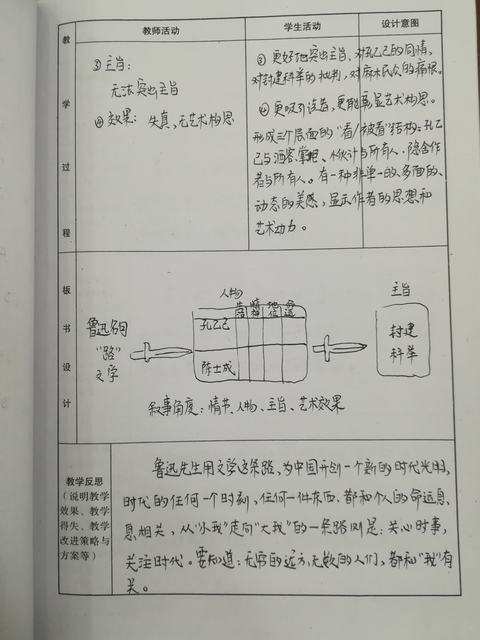 教学过程
教师活动
学生活动
设计意图
③主旨:
无法突出主旨
④效果:失真,无艺术构思
③更好地突出主旨、对孔乙己的同情,
对封建科举的批判,对麻木民众的痛恨。
④更吸引读者,更能彰显艺术构思。
形成三个层面的“看/被看”结构:孔乙
己与酒客、掌柜、小伙计与所有人、隐含作
者与所有人。有一种非单一的、多面的、
动态的美感,显示作者的思想和
艺术功力。
板书设计
鲁迅名句
“路”
文学
人物
性格
地位
命运
孔乙己
陈士成
主旨
封建
科举
叙事角度:情节、人物、主旨、艺术效果
教学反思
(说明教学
效果、教学
得失、教学
改进策略与
方案等)
鲁迅先生用文学这条路,为中国开创一个新的时代光明,
时代的任何一个时刻,任何一件东西,都和个人的命运息
息相关,从“小我”走向“大我”的一条路则是:关心时事,
关注时代。要知道:无穷的远方,无数的人们,都和“我”有
关。